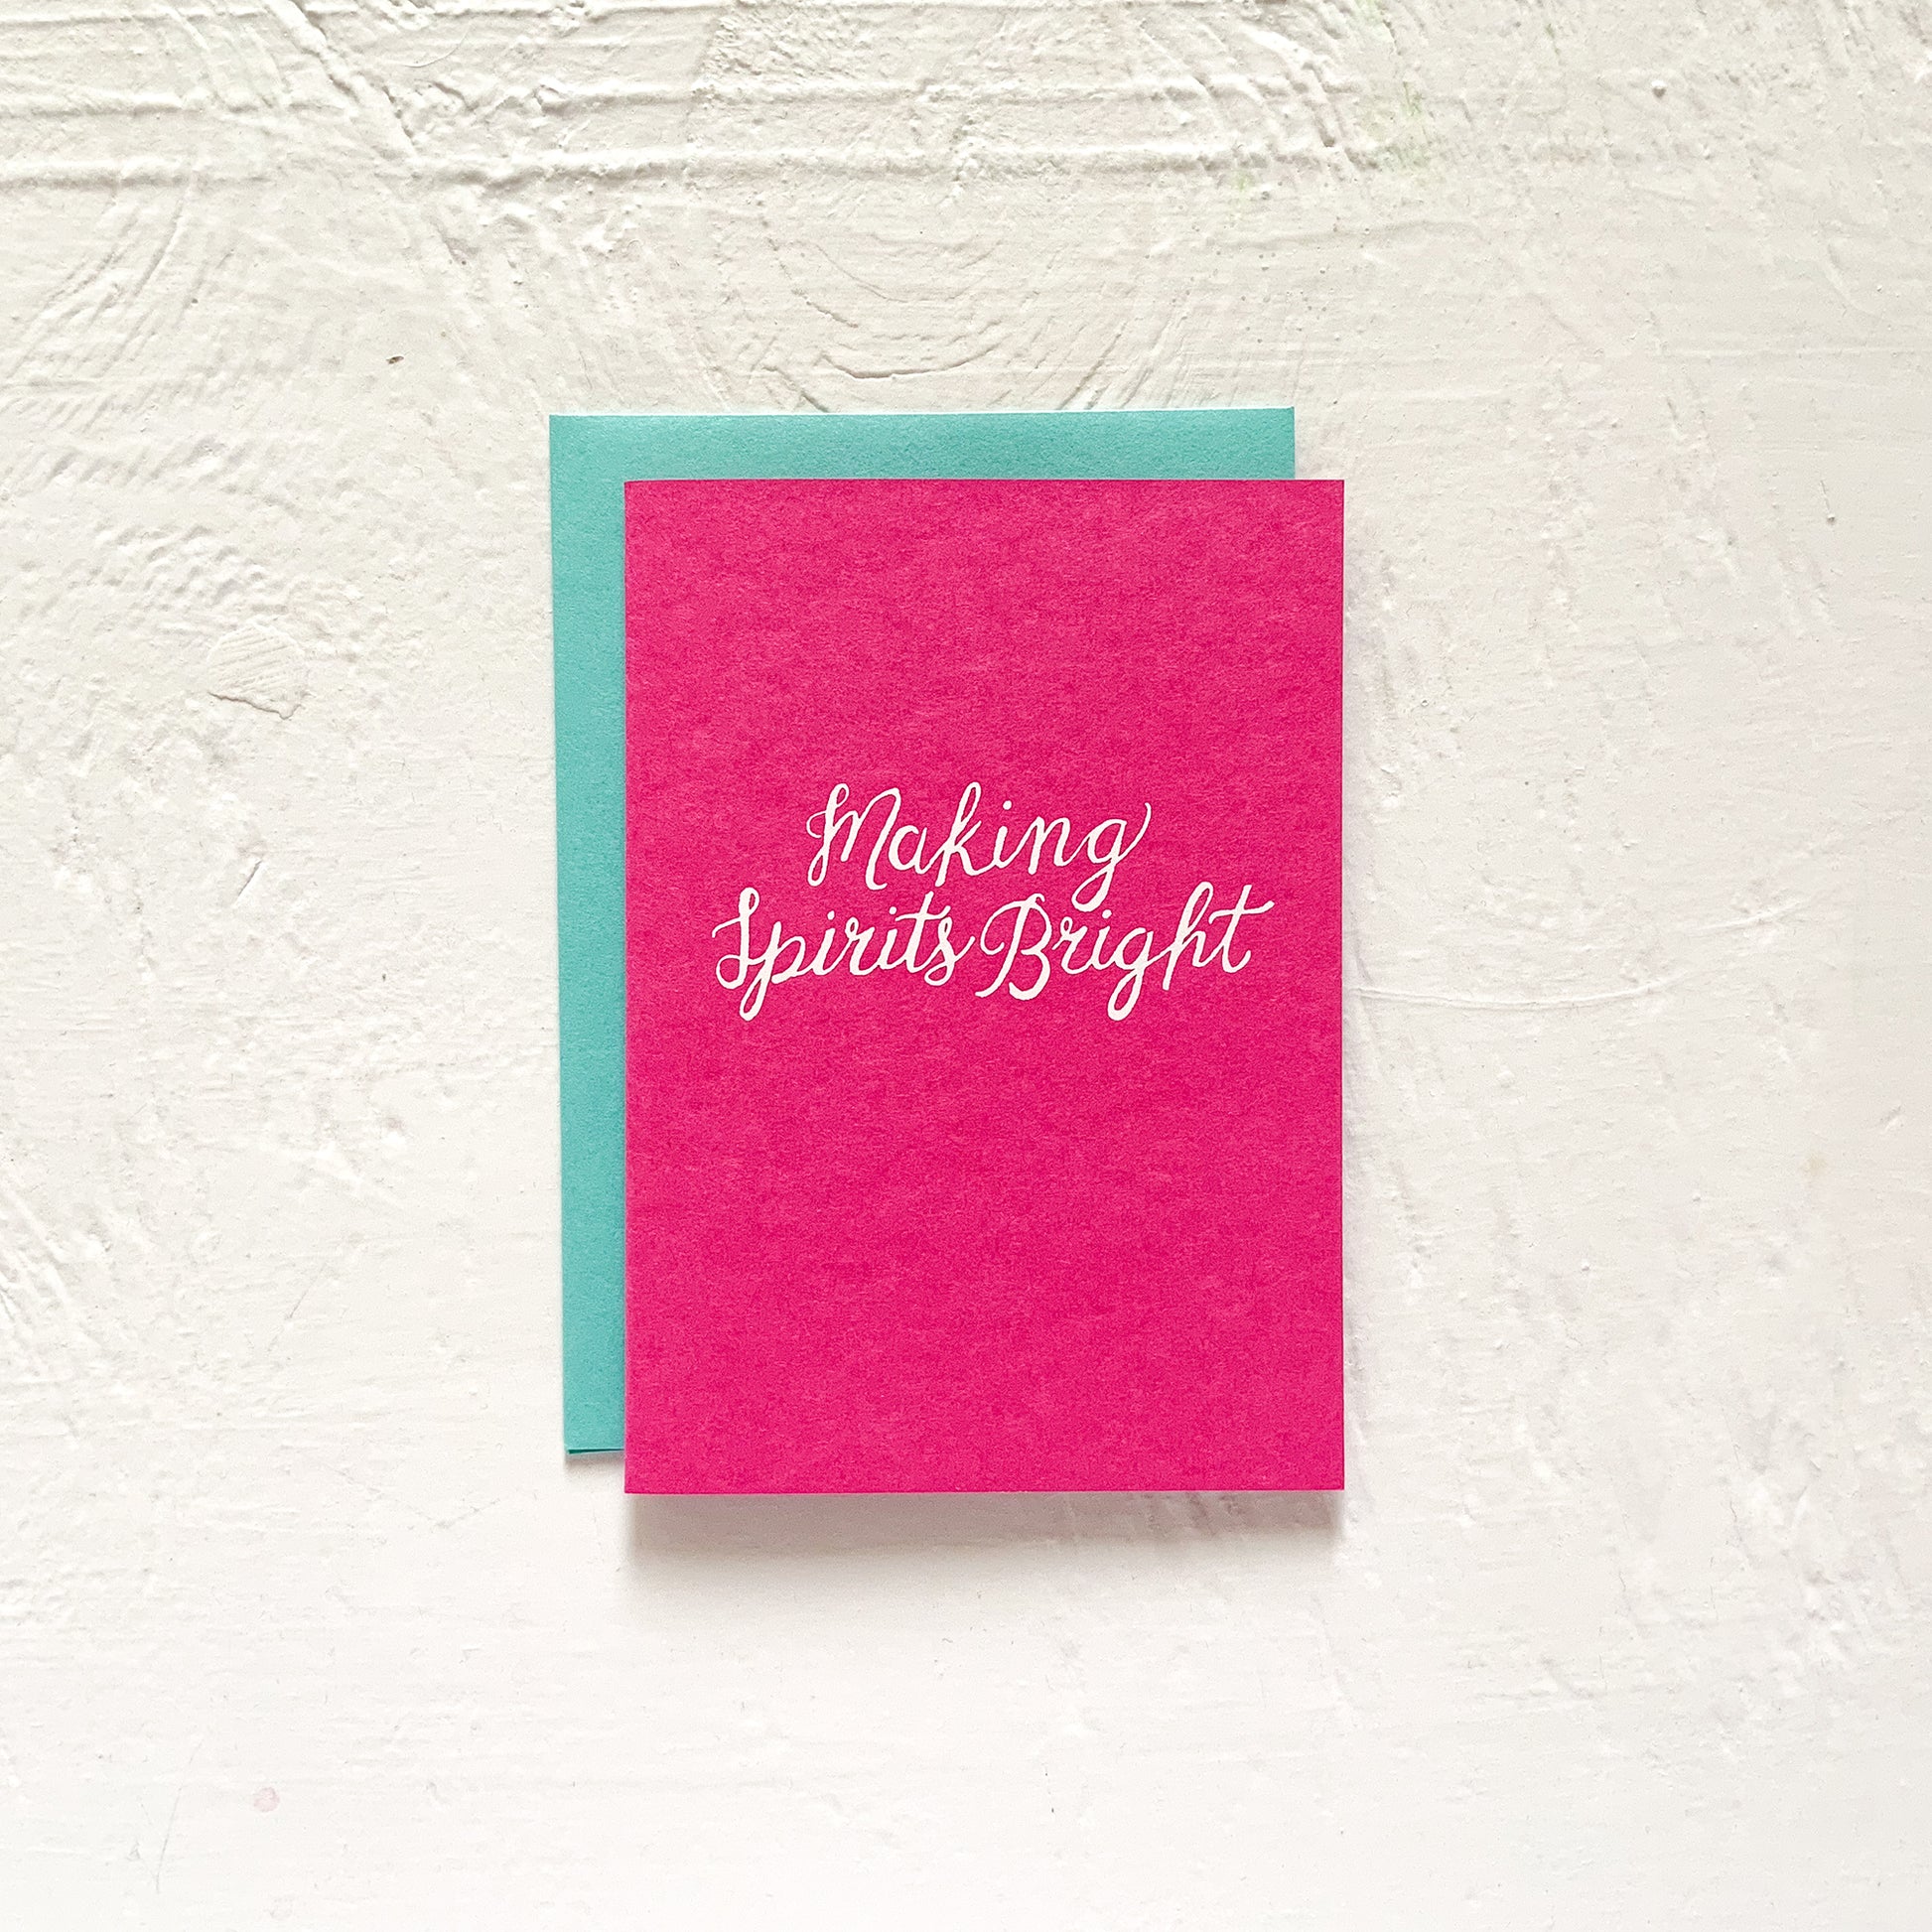 Making
Spirits Bright